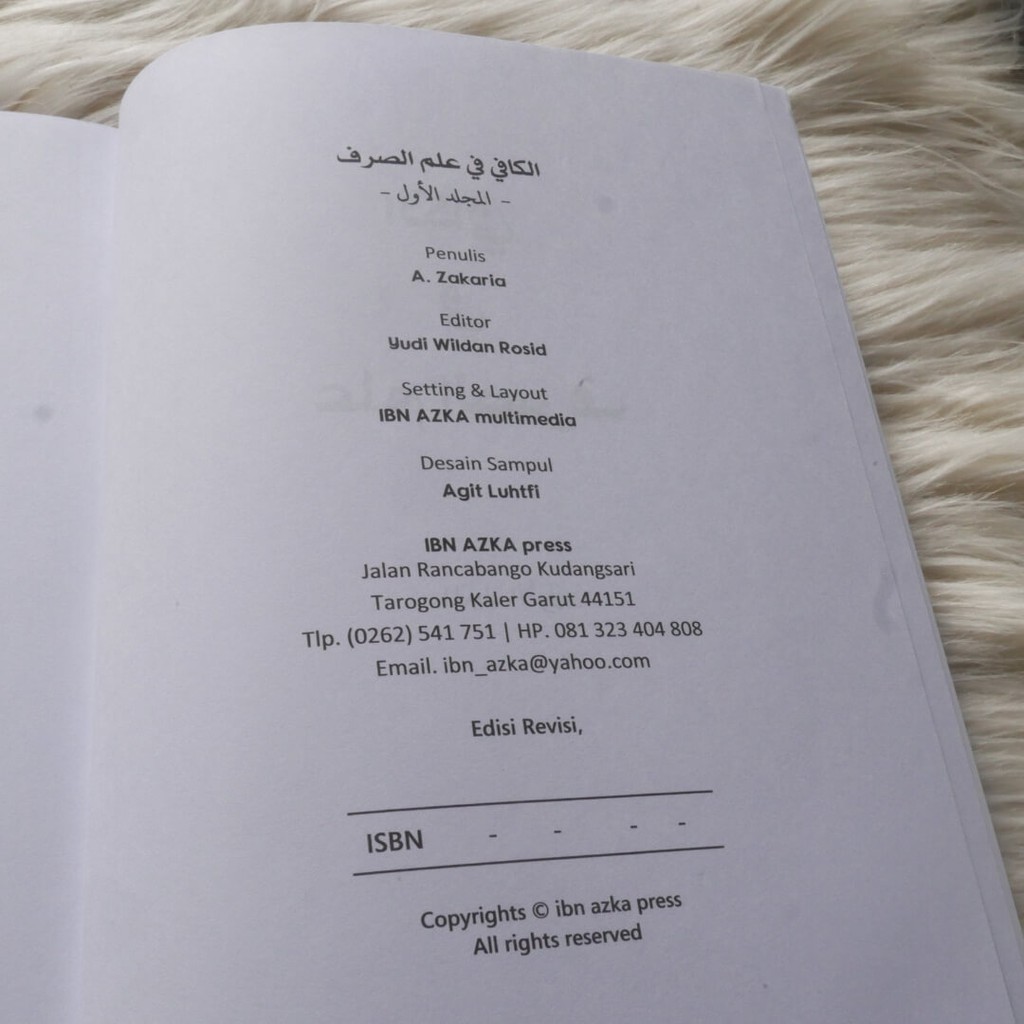 الكافي في علم الصرف
- المجلد الأول -
Penulis
A. Zakaria
Editor
Yudi Wildan Rosid
Setting & Layout
IBN AZKA multimedia
Desain Sampul
Agit Luhtfi
IBN AZKA press
Jalan Rancabango Kudangsari
Tarogong Kaler Garut 44151
Tlp. (0262) 541 751 | HP. 081 323 404 808
Email. ibn_azka@yahoo.com
Edisi Revisi,
ISBN - - - -
Copyrights © ibn azka press
All rights reserved